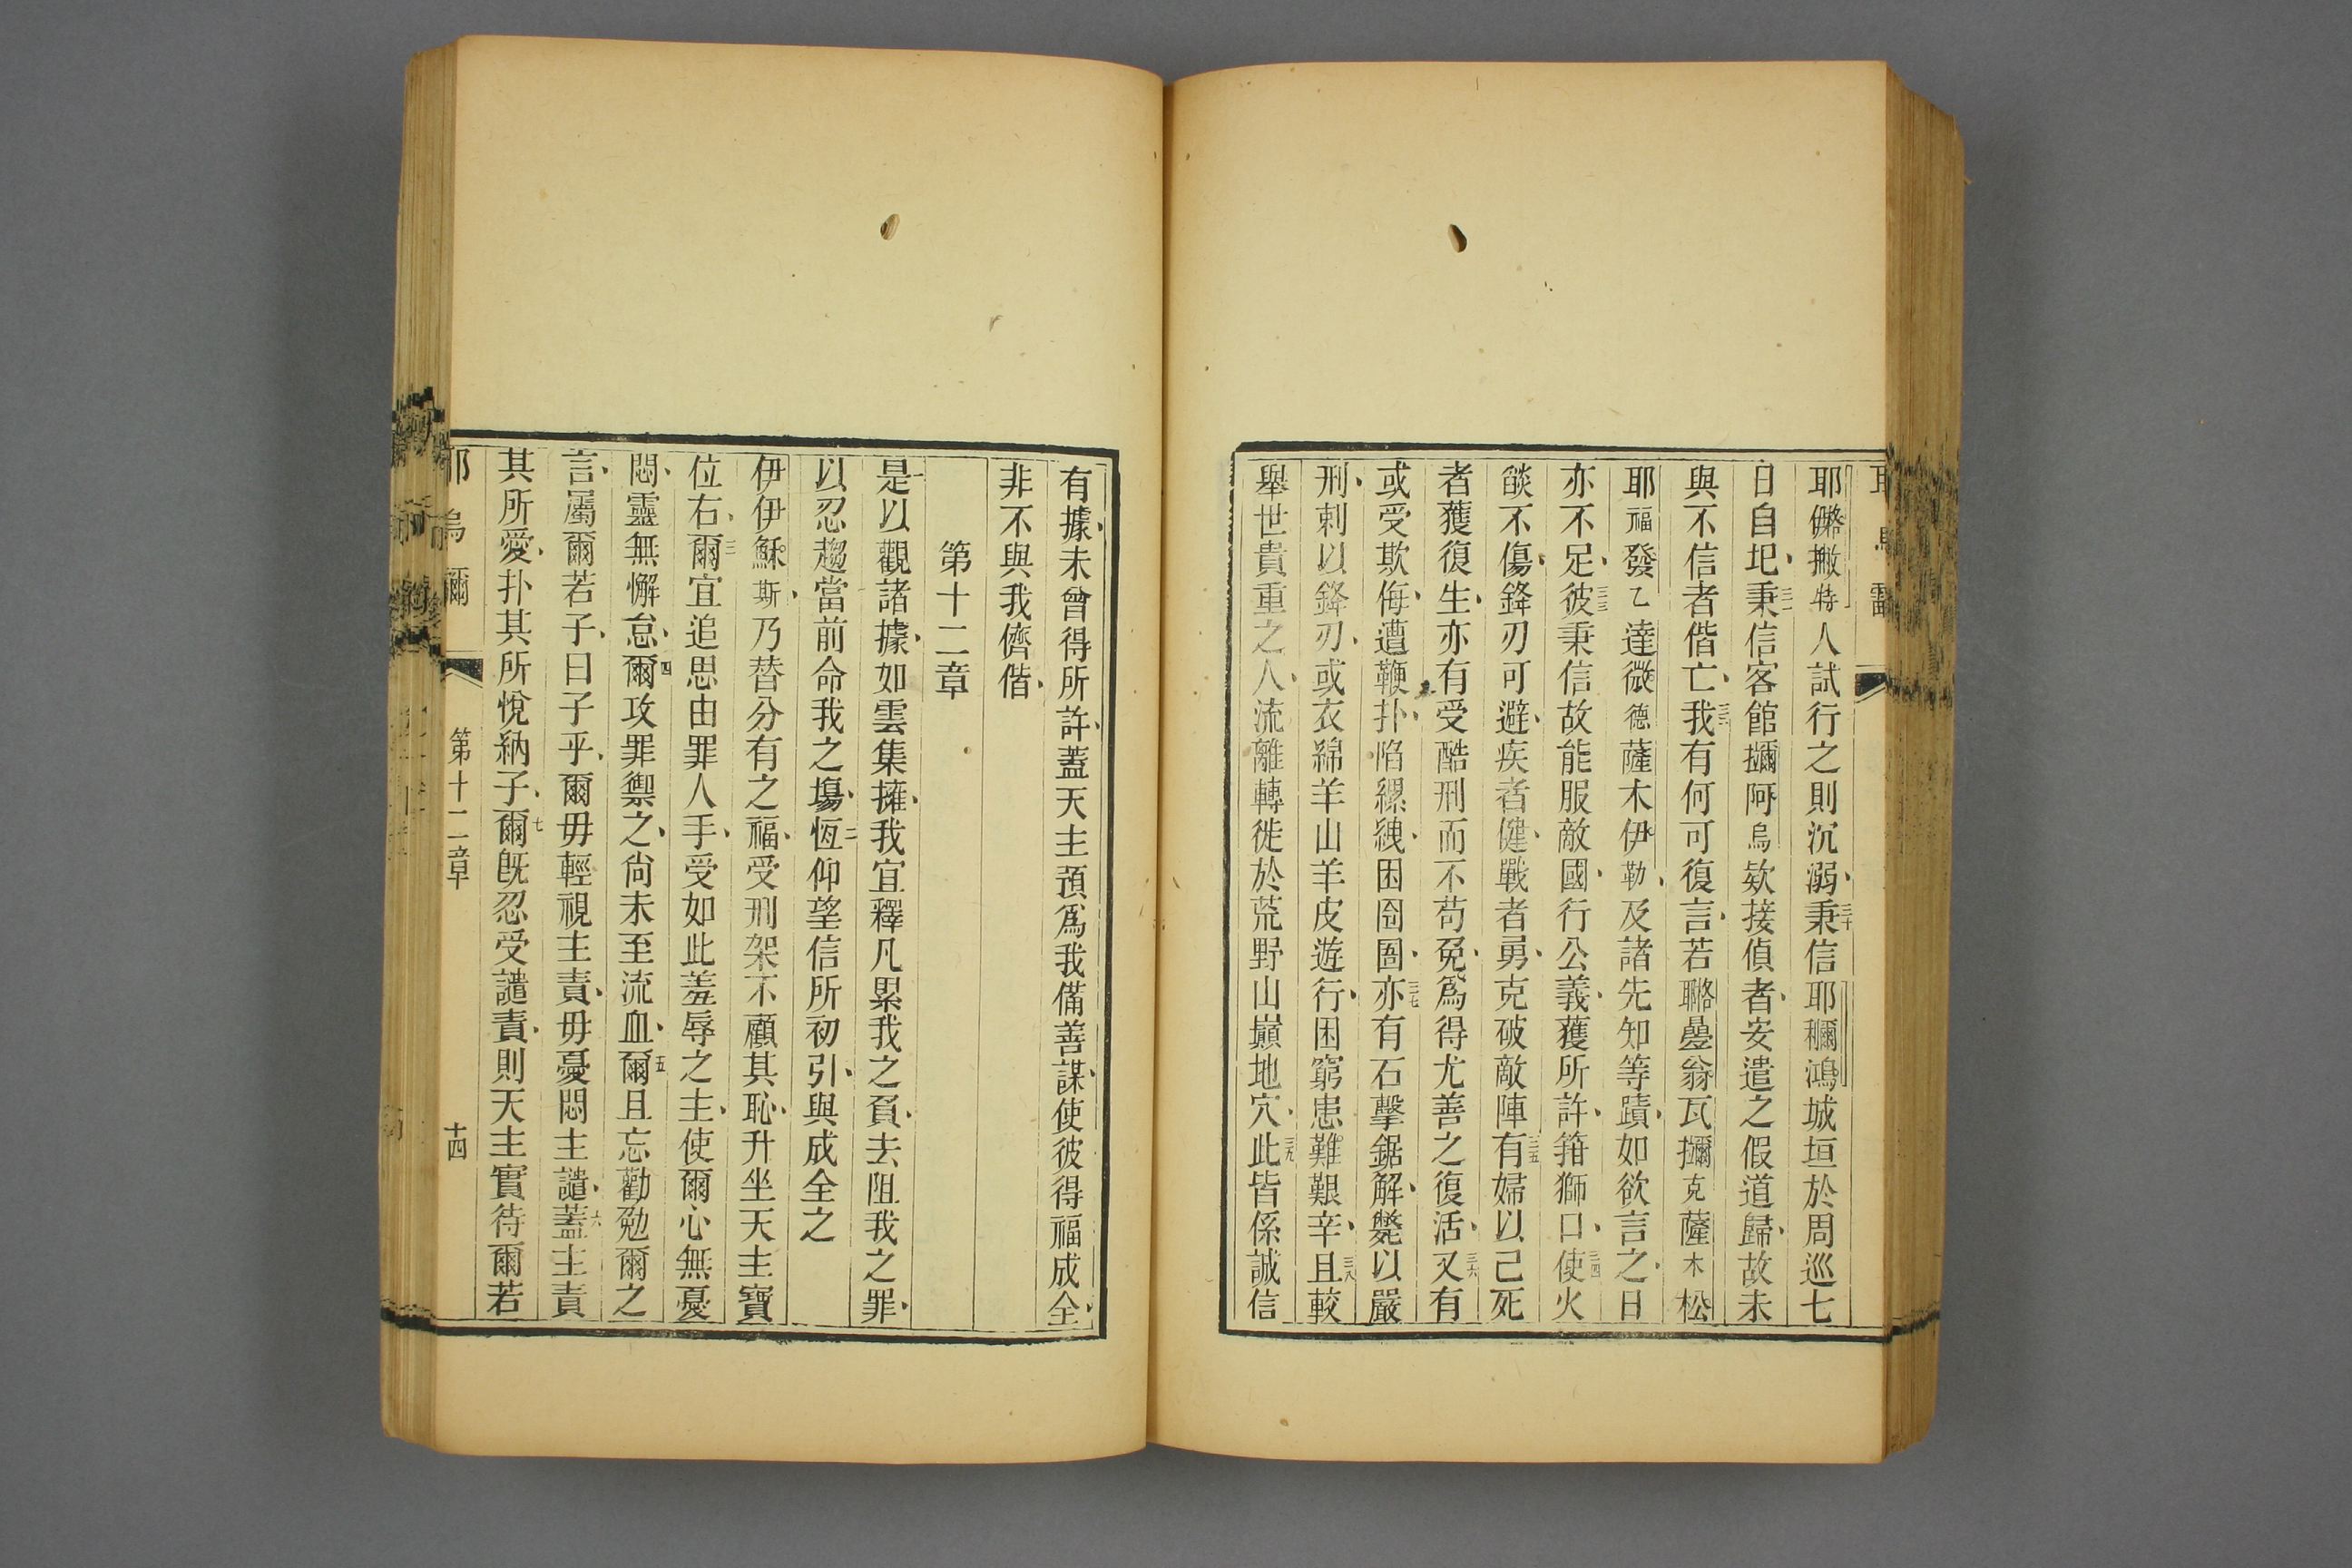 耶㗸撇特人試行之則沉溺三十秉信耶穪鴻城垣於周巡七
日自圯三一秉信客館擟阿烏欸接偵者安遣之假道歸故未
與不信者偕亡三二我有何可復言若聸疊翁瓦擟克薩木松
耶福發乙達微德薩木伊勒及諸先知等蹟如欲言之日
亦不足三三彼秉信故能服敵國行公義獲所許箝獅口三四使火
燄不傷鋒刃可避疾者健戰者勇克破敵陣三五有婦以己死
者獲復生亦有受酷刑而不苟免爲得尤善之復活三六又有
或受欺侮遭鞭扑陷縲絏困囹圄三七亦有石擊鋸解斃以嚴
刑刺以鋒刃或衣綿羊山羊皮遊行困窮患難艱辛三八且較
舉世貴重之人流離轉徙於荒野山巔地穴三九此皆係誠信
有據未曾得所許蓋天主預爲我備善謀使彼得福成全
非不與我儕偕
第十二章
一是以觀諸據如雲集擁我宜釋凡累我之負去阻我之罪
以忍趨當前命我之塲二恆仰望信所初引與成全之
伊伊穌斯乃替分有之福受刑架不顧其恥升坐天主寶
位右三爾宜追思由罪人手受如此羞辱之主使爾心無憂
悶靈無懈怠四爾攻罪禦之尙未至流血五爾且忘勸勉爾之
言屬爾若子曰子乎爾毋輕視主責毋憂悶主譴六蓋主責
其所愛扑其所悅納子七爾旣忍受譴責則天主實待爾若
第十二章 十四